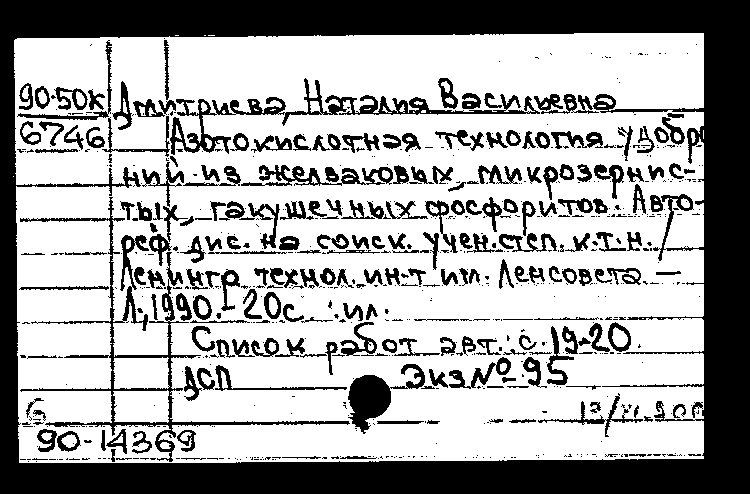 90-50к Дмитриева, Наталия Васильевна
6746 Азотокислотная технология удобре
ний из желваковых, микрозернис-
тых, ракушечных фосфоритов: Авто-
реф. дис. на соиск. учен. степ. к.т.н. /
Ленингр технол. ин-т им. Ленсовета. —
Л., 1990. - 20 с. : ил.
Список работ авт.: с. 19-20
ДСП Экз № 95
6
90-14369